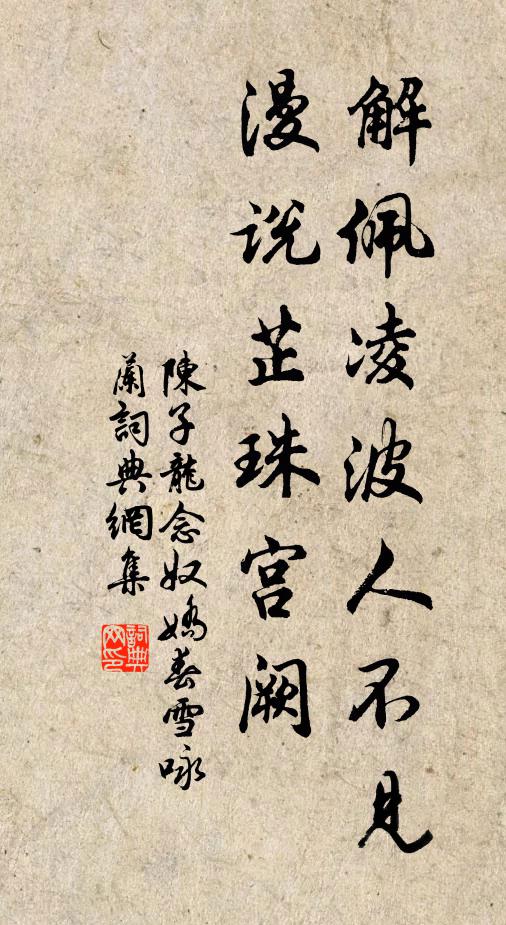 解佩凌波人不見
漫説芷珠宫闕
陳子龍念奴嬌春雪咏
蘭詞典網集
詞典
网印